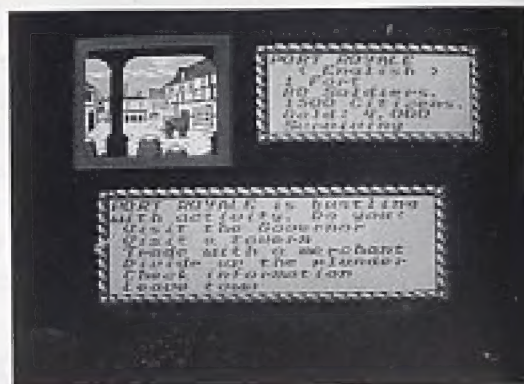 PORT ROYALE
( English )
1 Fort
80 Soldiers.
1500 Citizens.
Gold: 4,000
PORT ROYALE is bustling
with activity. Do you:
Visit the Governor
Visit a Tavern
Trade with a merchant
Divide up the plunder
Check information
Leave town